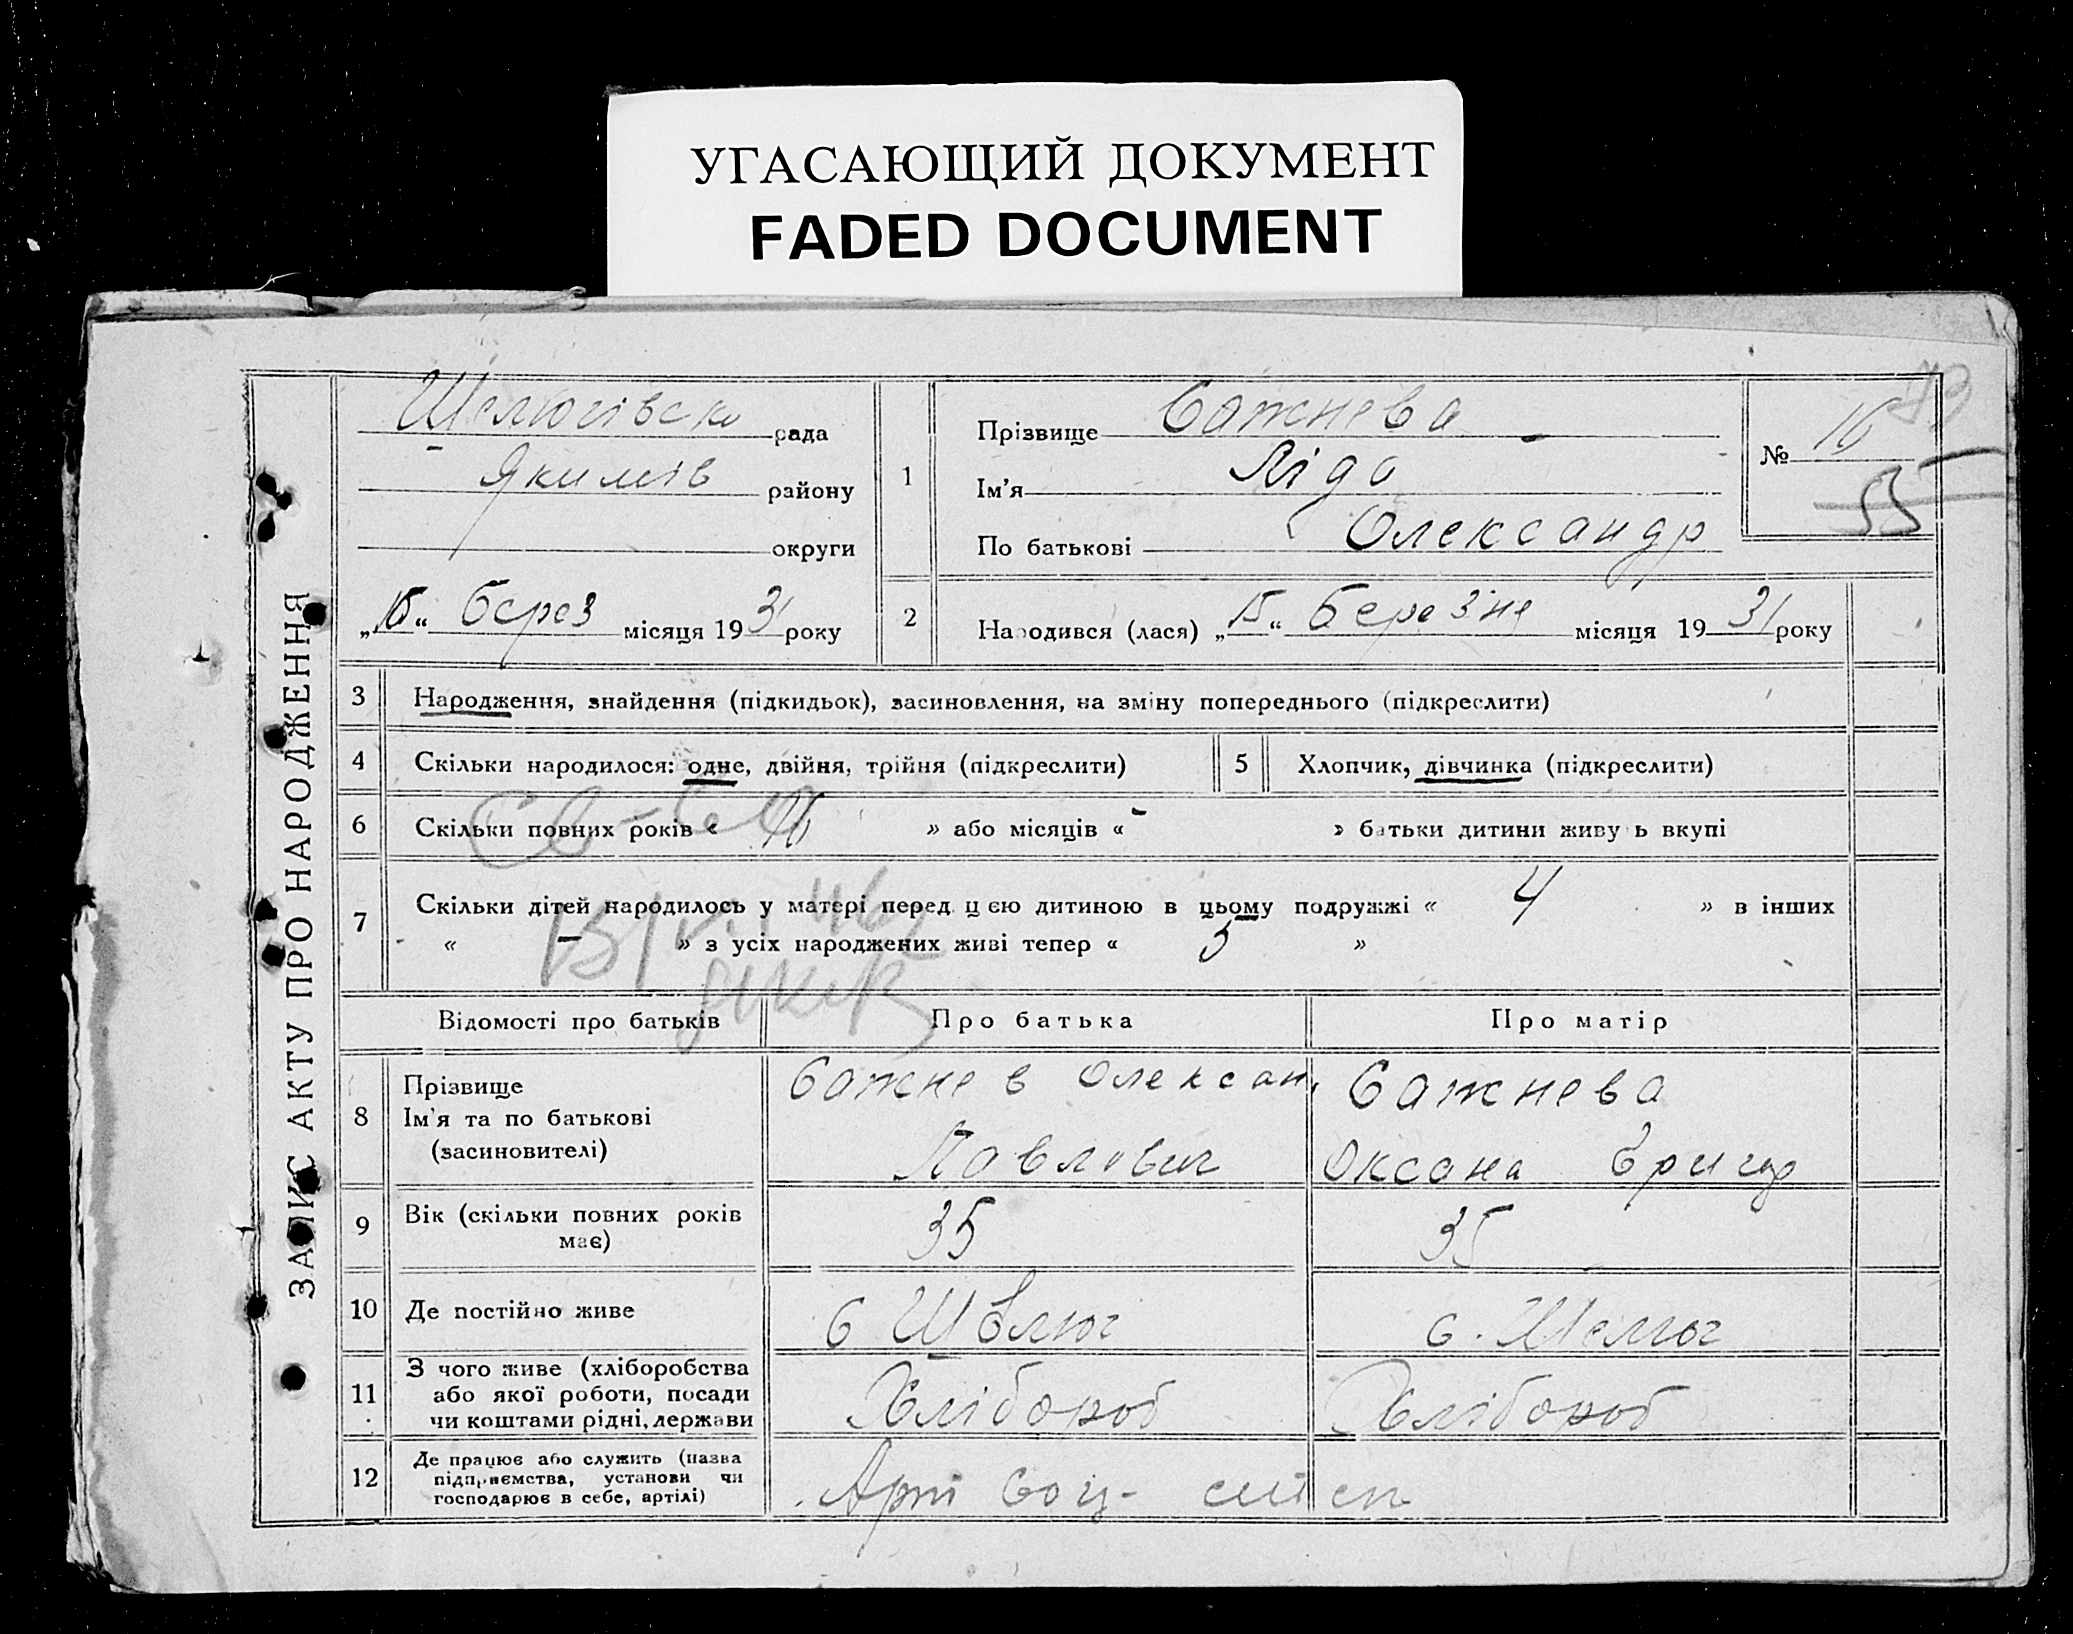 УГАСАЮЩИЙ ДОКУМЕНТ
FADED DOCUMENT
ЗАПИС АКТУ ПРО НАРОДЖЕННЯ
Шелюгівськ рада
Якимів району
округи
„15“ берез місяця 1931 року
1
Прізвище Сажнева
Ім'я Ліда
По батькові Олександр
№ 16
53
2
Народився (лася) „15“ березня місяця 1931 року
3 Народження, знайдення (підкидьок), засиновлення, на зміну попереднього (підкреслити)
4 Скільки народилося: одне, двійня, трійня (підкреслити) 5 Хлопчик, дівчинка (підкреслити)
6 Скільки повних років « 16 » або місяців « - » батьки дитини живуть вкупі
7 Скільки дітей народилось у матері перед цією дитиною в цьому подружжі « 4 » в інших
« — » з усіх народжених живі тепер « 5 »
Відомості про батьків Про батька Про матір
8 Прізвище
Ім'я та по батькові
(засиновителі)
Сажнев Олексан
Павлович
Сажнева
Оксана
9 Вік (скільки повних років
має)
35
35
10 Де постійно живе
с Шелюг
с. Шелюг
11 З чого живе (хліборобства
або якої роботи, посади
чи коштами рідні, держави
Хлібороб
Хлібороб
12 Де працює або служить (назва
підприємства, установи чи
господарює в себе, артілі)
Арт Соц-